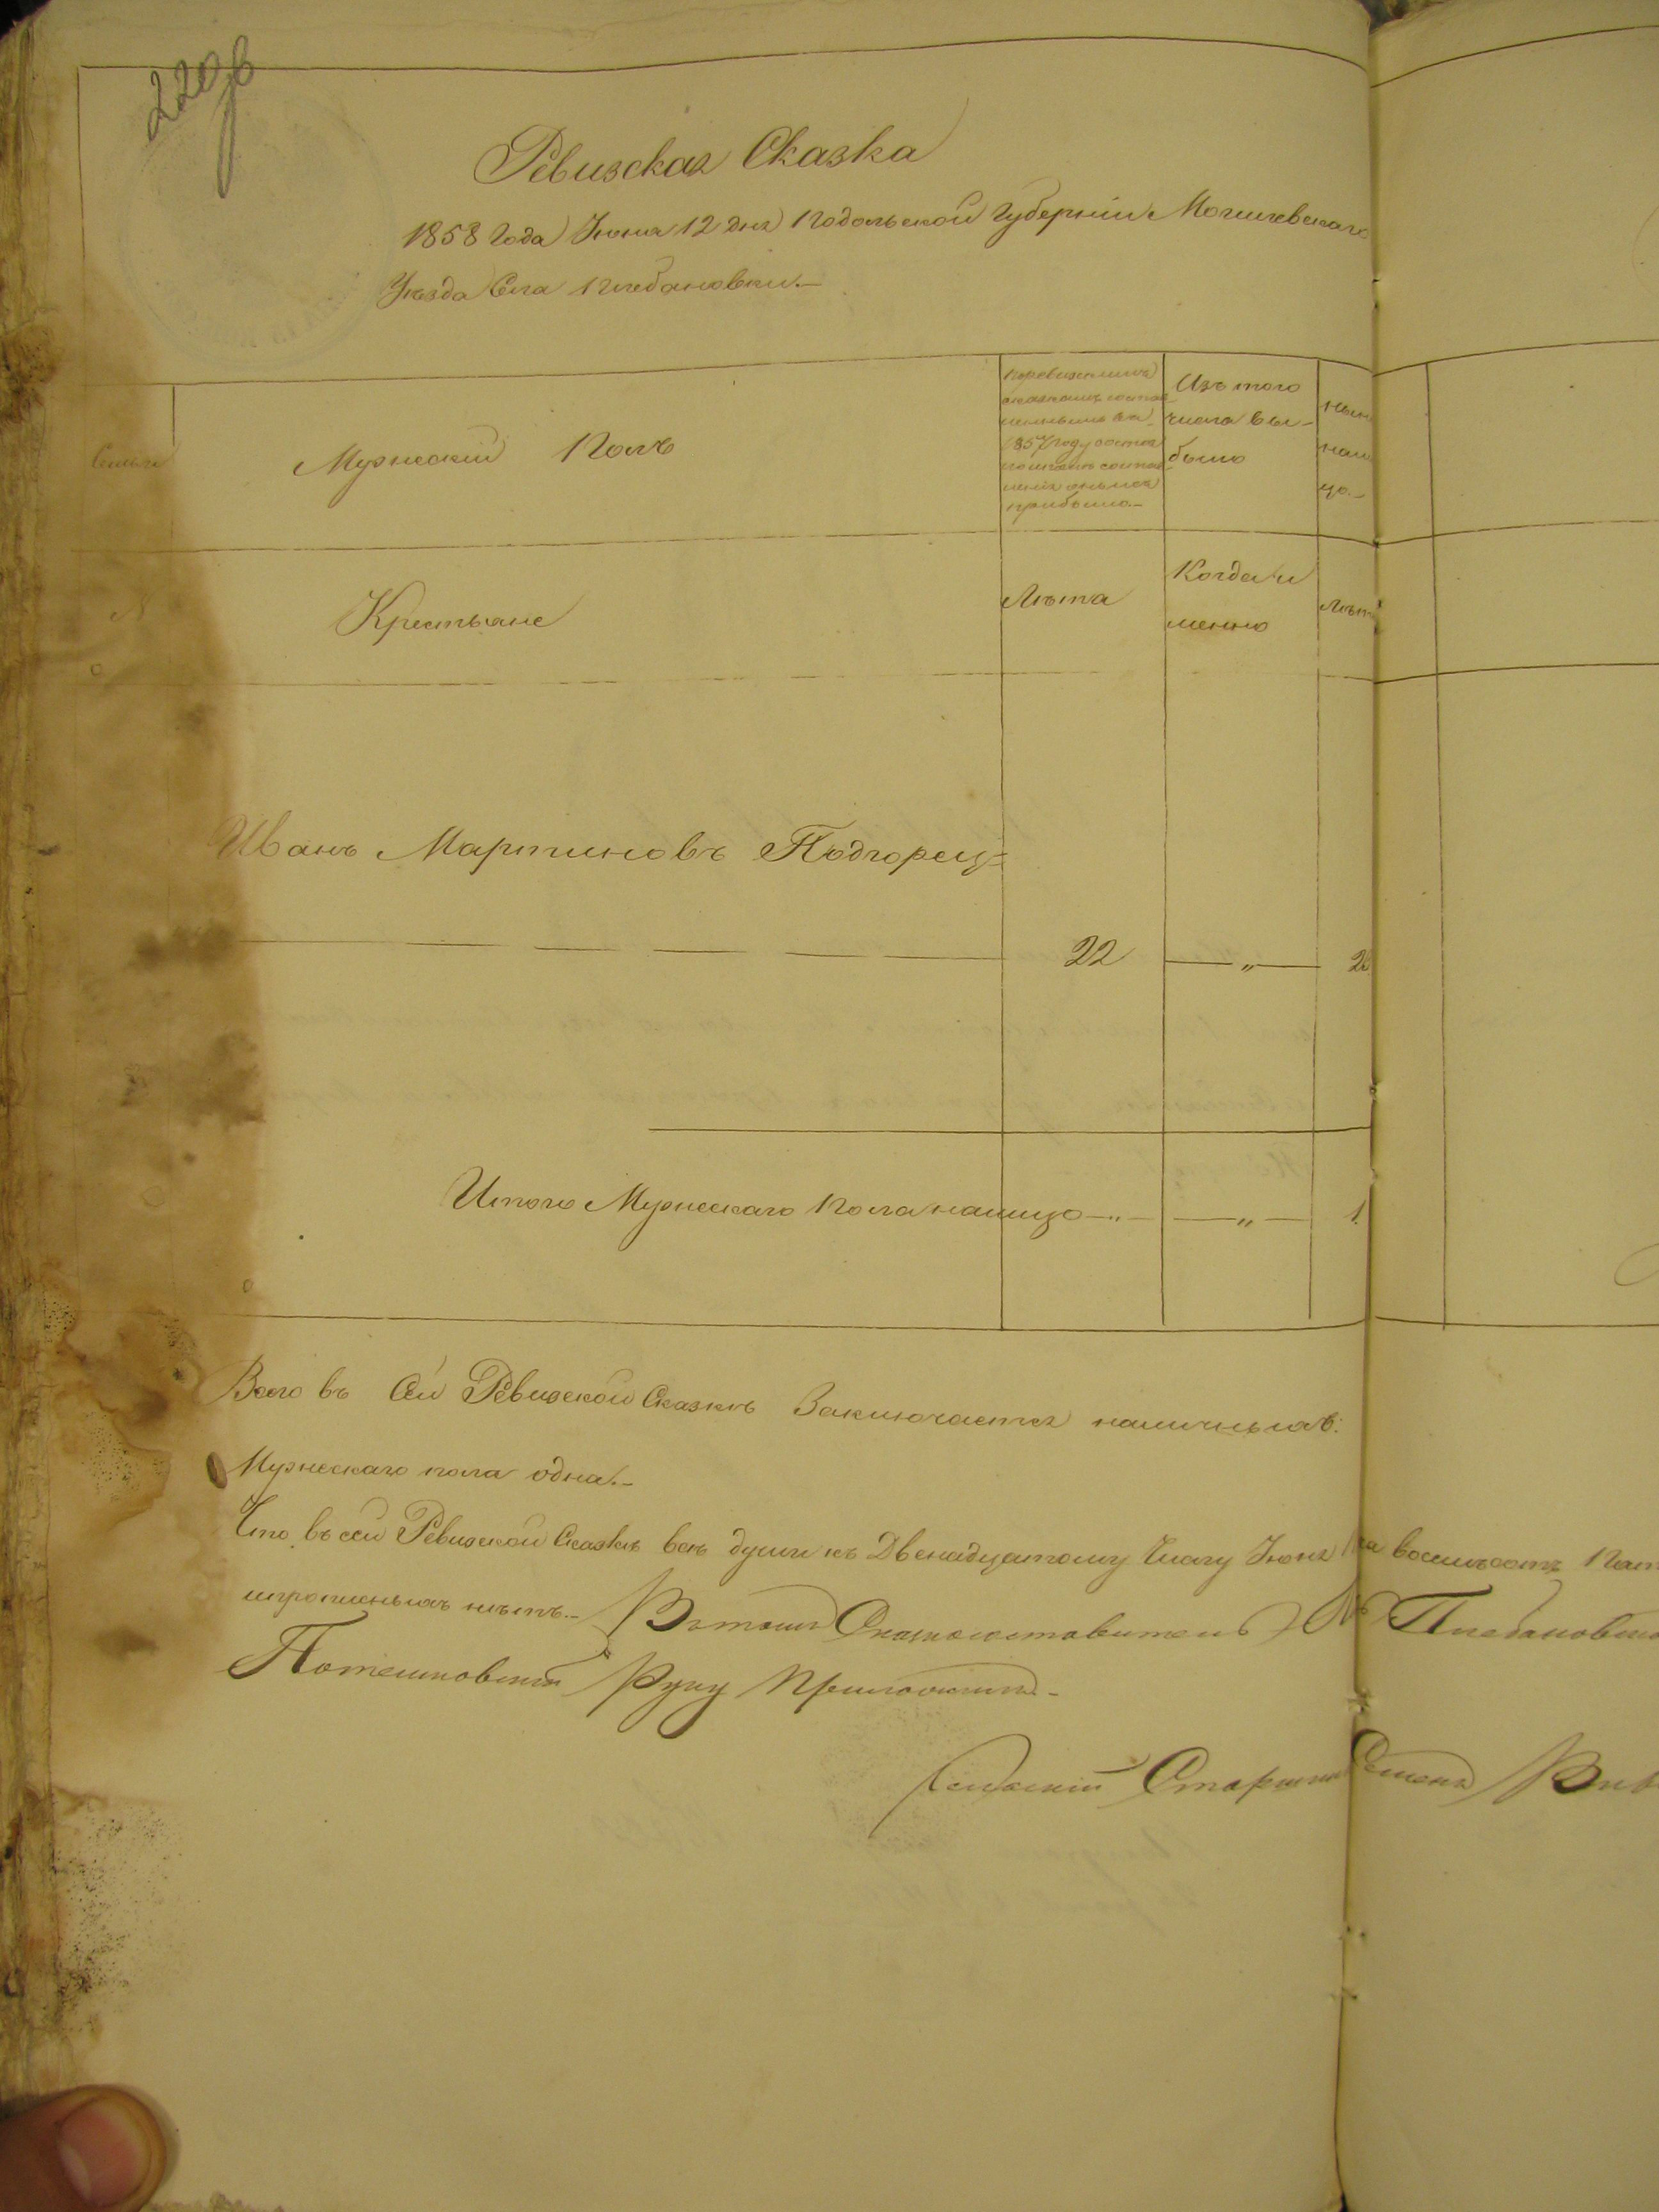 220 об
Ревизская Сказка
1858 Года Июня 12 дня Подольской Губернии Могилевскаго
Уѣзда Села Плебановки.—
Семьи
Мужескій Полъ
По ревизскимъ
сказкамъ состав-
леннымъ въ
1857 году состоя
прибыло.—
Изъ того
числа вы-
было
нын
нали
цо.—
№
Крестьане
Лѣта
Когда и
менно
Лѣт
Иванъ Мартиновъ Подгорец=
22 — „ — 2
Итого Мужескаго Пола налицо — „ — — „ — 1.
Всего въ Сей Ревизской Сказкѣ Заключается наличныхъ:
Мужескаго пола одна.—
Что въ сей Ревизской Сказкѣ всѣ души къ Двенадцатому Числу Июня восемъсотъ Пят
ипрописныхъ нѣтъ.— Въ томъ Сказкосоставитель Плебановско
Потешковскій Руку Приложилъ.—
Сельскій Старшин Семенъ